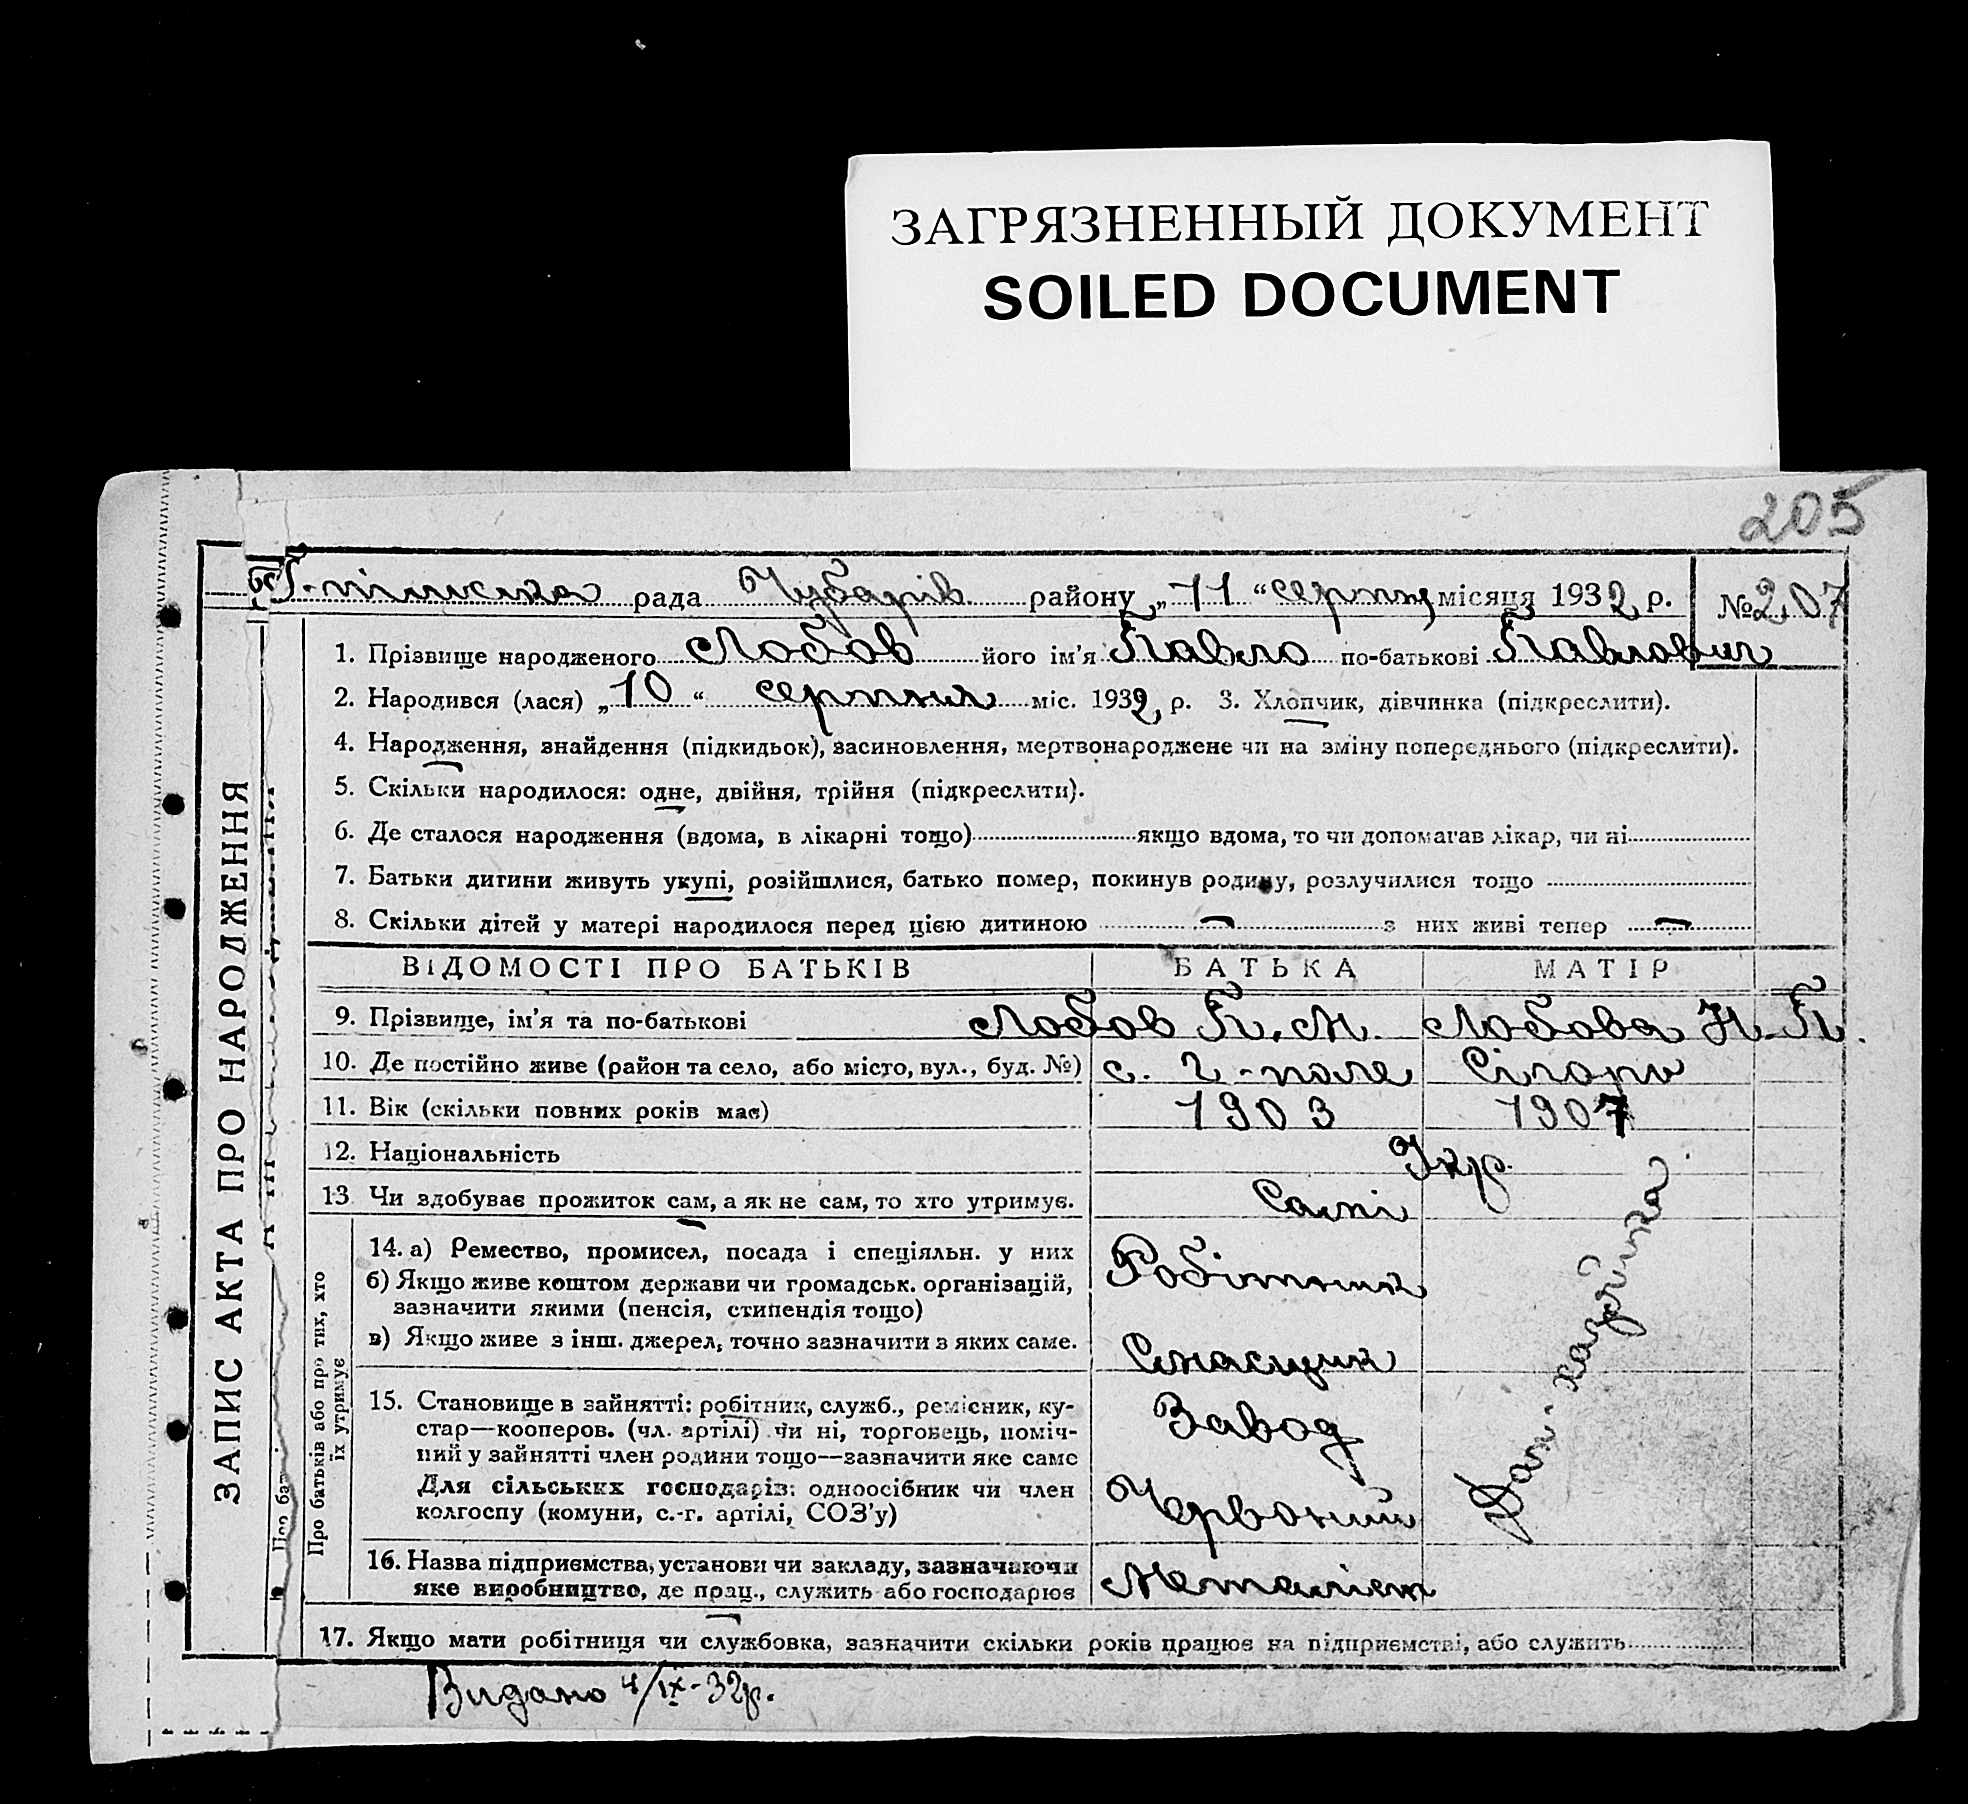 ЗАГРЯЗНЕННЫЙ ДОКУМЕНТ
SOILED DOCUMENT
205
рада Чубарів району „ 11 “ серпня місяця 1932 р. № 207
ЗАПИС АКТА ПРО НАРОДЖЕННЯ
1. Прізвище народженого Лобов його ім'я Павло по-батькові Павлович
2. Народився (лася) „ 10 “ серпня міс. 1932 р. 3. Хлопчик, дівчинка (підкреслити).
4. Народження, знайдення (підкидьок), засиновлення, мертвонароджене чи на зміну попереднього (підкреслити).
5. Скільки народилося: одне, двійня, трійня (підкреслити).
6. Де сталося народження (вдома, в лікарні тощо) якщо вдома, то чи допомагав лікар, чи ні
7. Батьки дитини живуть укупі, розійшлися, батько помер, покинув родину, розлучилися тощо
8. Скільки дітей у матері народилося перед цією дитиною — з них живі тепер —
ВІДОМОСТІ ПРО БАТЬКІВ БАТЬКА МАТІР
9. Прізвище, ім'я та по-батькові Лобов П. М. Лобова Н. П.
10. Де постійно живе (район та село, або місто, вул., буд. №) с. Г-поле
11. Вік (скільки повних років має) 1903 1907
12. Національність Укр.
13 Чи здобуває прожиток сам, а як не сам, то хто утримує. Самі
Про батьків або про тих, хто
їх утримує
14. а) Ремество, промисел, посада і спеціяльн. у них Робітник
б) Якщо живе коштом держави чи громадськ. організацій,
зазначити якими (пенсія, стипендія тощо)
в) Якщо живе з інш. джерел, точно зазначити з яких саме.
15. Становище в зайнятті: робітник, служб., ремісник, ку-
стар—кооперов. (чл. артілі) чи ні, торговець, поміч-
ний у зайнятті член родини тощо—зазначити яке саме
Завод
Для сільських господарів: одноосібник чи член
колгоспу (комуни, с.-г. артілі, СОЗ'у)
Червоний
16. Назва підприємства, установи чи закладу, зазначаючи
яке виробництво, де прац., служить або господарює
Металіст
Дом-хазяйка
17. Якщо мати робітниця чи службовка, зазначити скільки років працює на підприємстві, або служить
Видано 4/IX-32р.